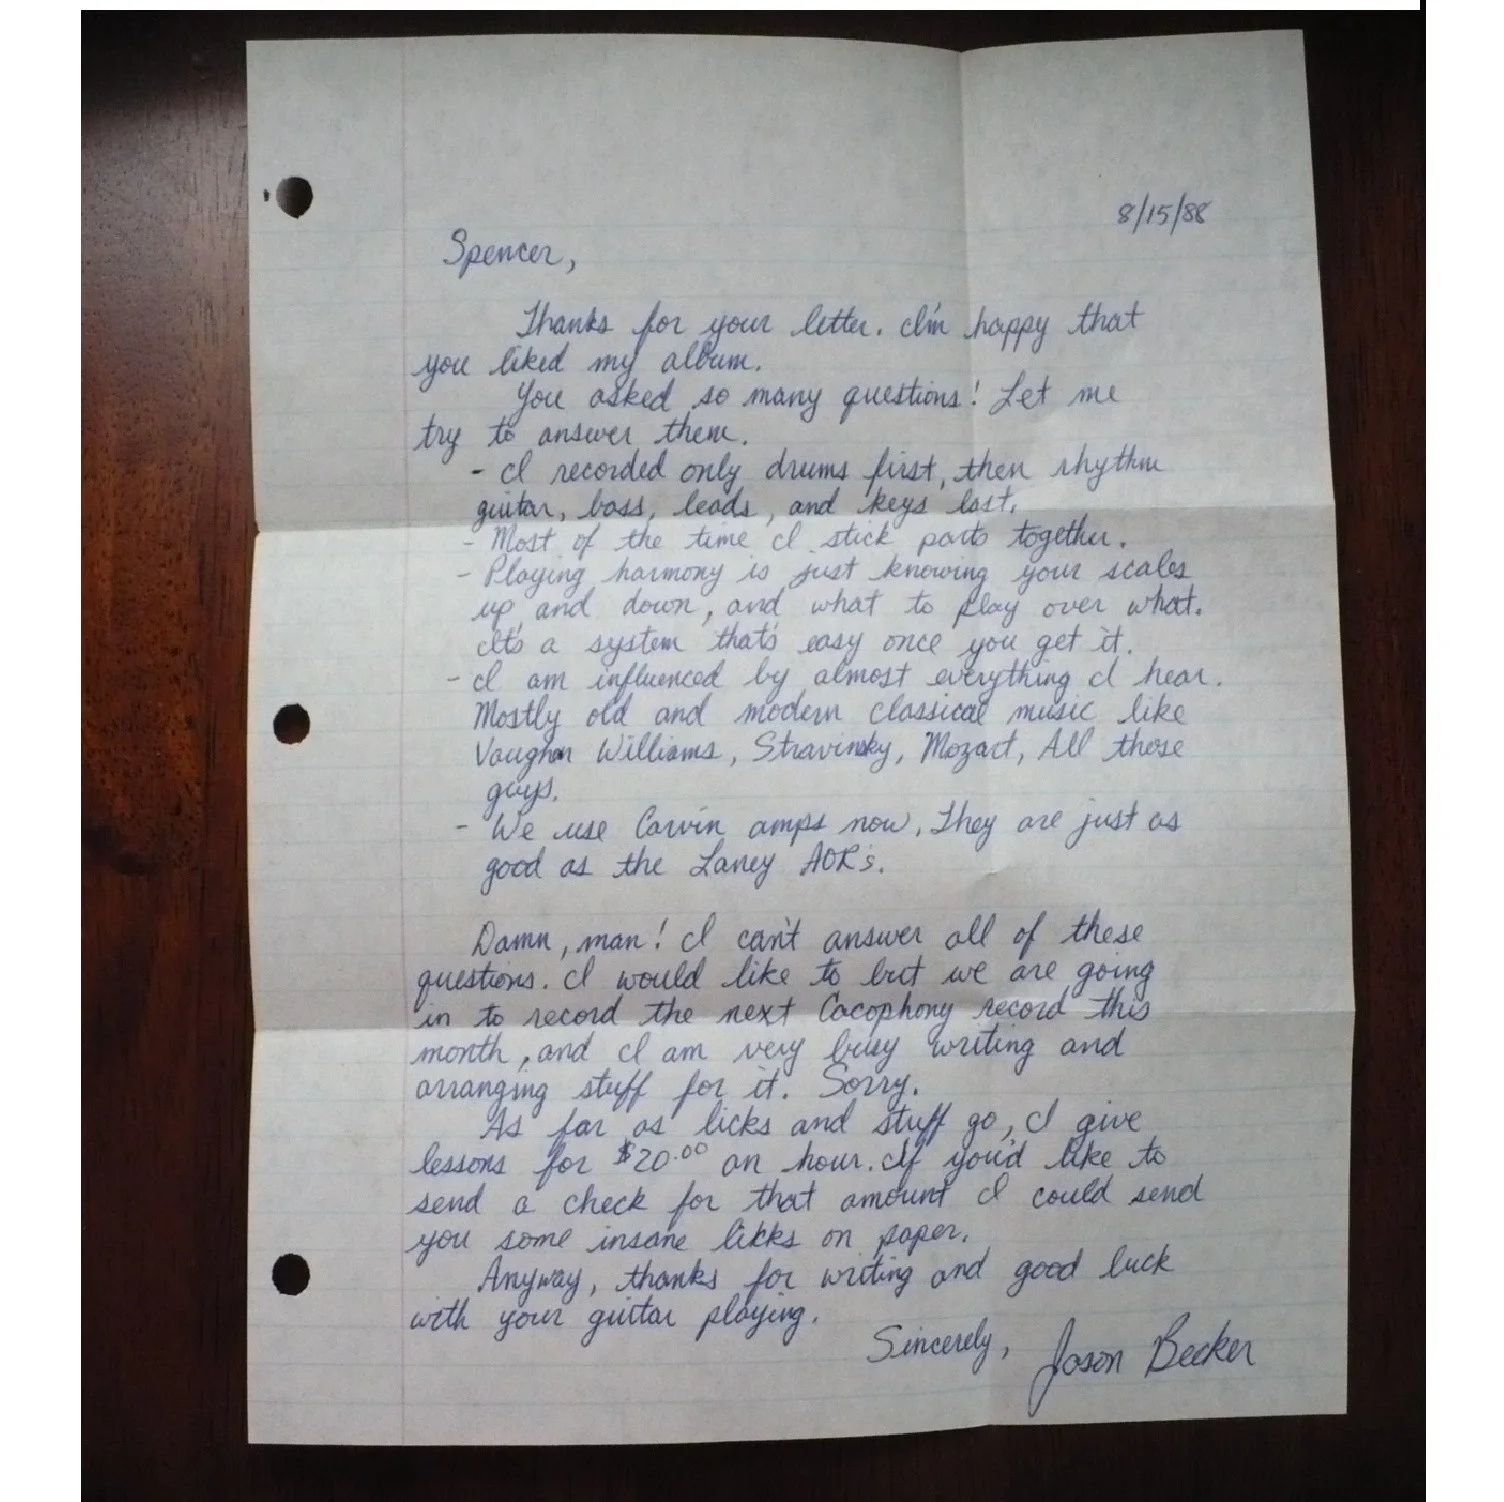 8/15/88
Spencer,
Thanks for your letter. I'm happy that
you liked my album.
You asked so many questions! Let me
try to answer them.
- I recorded only drums first, then rhythm
guitar, bass, leads, and keys last.
- Most of the time I stick parts together.
- Playing harmony is just knowing your scales
up and down, and what to play over what.
It's a system that's easy once you get it.
- I am influenced by almost everything I hear.
Mostly old and modern classical music like
Vaughn Williams, Stravinsky, Mozart, All those
guys.
- We use Carvin amps now, They are just as
good as the Laney AOR's.
Damn, man! I can't answer all of these
questions. I would like to but we are going
in to record the next Cacophony record this
month, and I am very busy writing and
arranging stuff for it. Sorry.
As far as licks and stuff go, I give
lessons for $20.00 an hour. If you'd like to
send a check for that amount I could send
you some insane likks on paper.
Anyway, thanks for writing and good luck
with your guitar playing.
Sincerely, Jason Becker